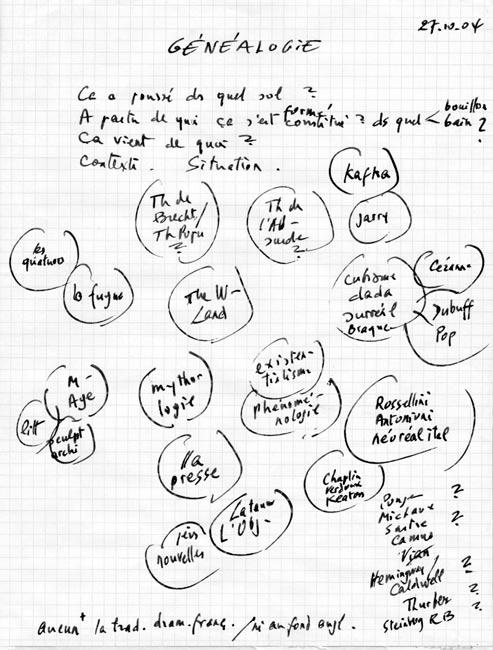 27.10.04
GÉNÉALOGIE
Ca a poussé ds quel sol ?
A partir de quoi ça s'est formé constitué ? ds quel < bouillon bain ?
Ca vient de quoi ?
Contexte. Situation.
Kafka
Jarry
Th de
Brecht/
Th Popu
?
Th de
l'Ab-
surde
?
les
quatuors
la fugue
The W-
Land
Cubisme
dada
surréal
Braque
Cézanne
Dubuff
Pop
M-
Age
litt
sculpt
archi
mytho-
logie
existen-
tialisme
phénomé-
nologie
Rossellini
Antonioni
néoréalital
la
presse
Chaplin
Verdoux
Keaton
L'Obj-
nouvelles
Ponge ?
Michaux
Sartre ?
Camus
Vian
Hemingway/ ?
Caldwell
Thurber ?
Steinberg RB ?
aucun+ la trad. dram. franç. /ni au fond angl.